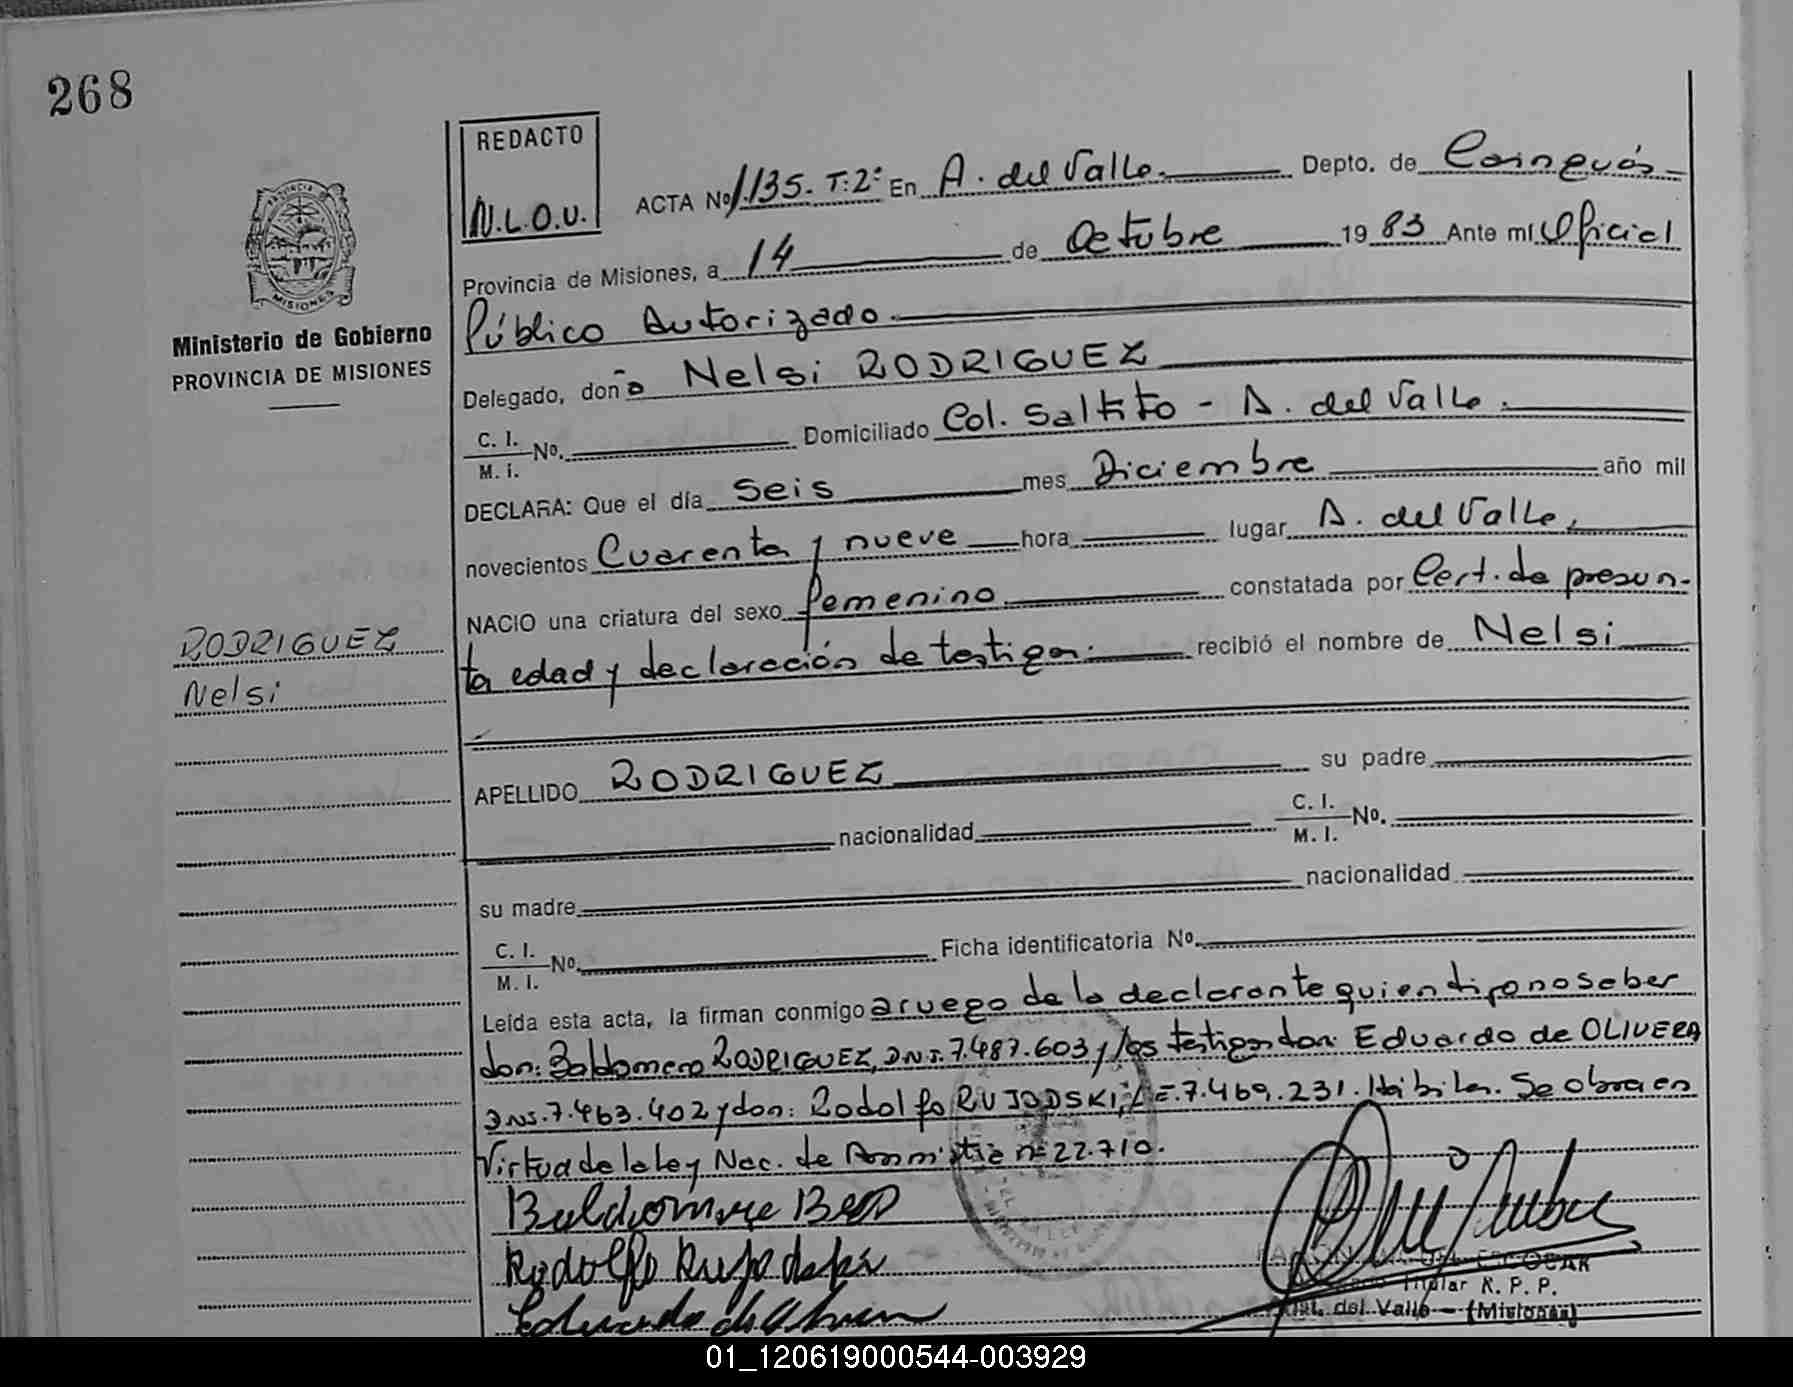 268
REDACTO
N.L.O.U.
ACTA No 1.135. T:2° En A. del Valle. Depto. de Cainguás
Provincia de Misiones, a 14 de Octubre 1983 Ante mí Oficial
Público Autorizado.
Delegado, doña Nelsi RODRIGUEZ
C. I.
M. I. No. Domiciliado Col. Saltito - A. del Valle.
DECLARA: Que el día Seis mes Diciembre año mil
novecientos Cuarenta y nueve hora lugar A. del Valle,
NACIO una criatura del sexo femenino constatada por Cert. de presun-
ta edad y declaración de testigos. recibió el nombre de Nelsi
APELLIDO RODRIGUEZ su padre
nacionalidad C. I. M. I. No.
su madre nacionalidad
C. I. M. I. No. Ficha identificatoria No.
Leída esta acta, la firman conmigo a ruego de la declarante quien dijo no saber
don: Baldomero RODRIGUEZ, D.N.I. 7.487.603 y los testigos don: Eduardo de OLIVERA
DNI. 7.463.402 y don: Rodolfo RUJODSKI, LE. 7.469.231. Hábiles. Se obra en
Virtud de la Ley Nac. de Amnistia nº 22.710.
Rodolfo
Eduardo
ESCOBAR
Titular R. P. P.
del Valle - (Misiones)
PROVINCIA DE
MISIONES
Ministerio de Gobierno
PROVINCIA DE MISIONES
RODRIGUEZ
Nelsi
01_120619000544-003929